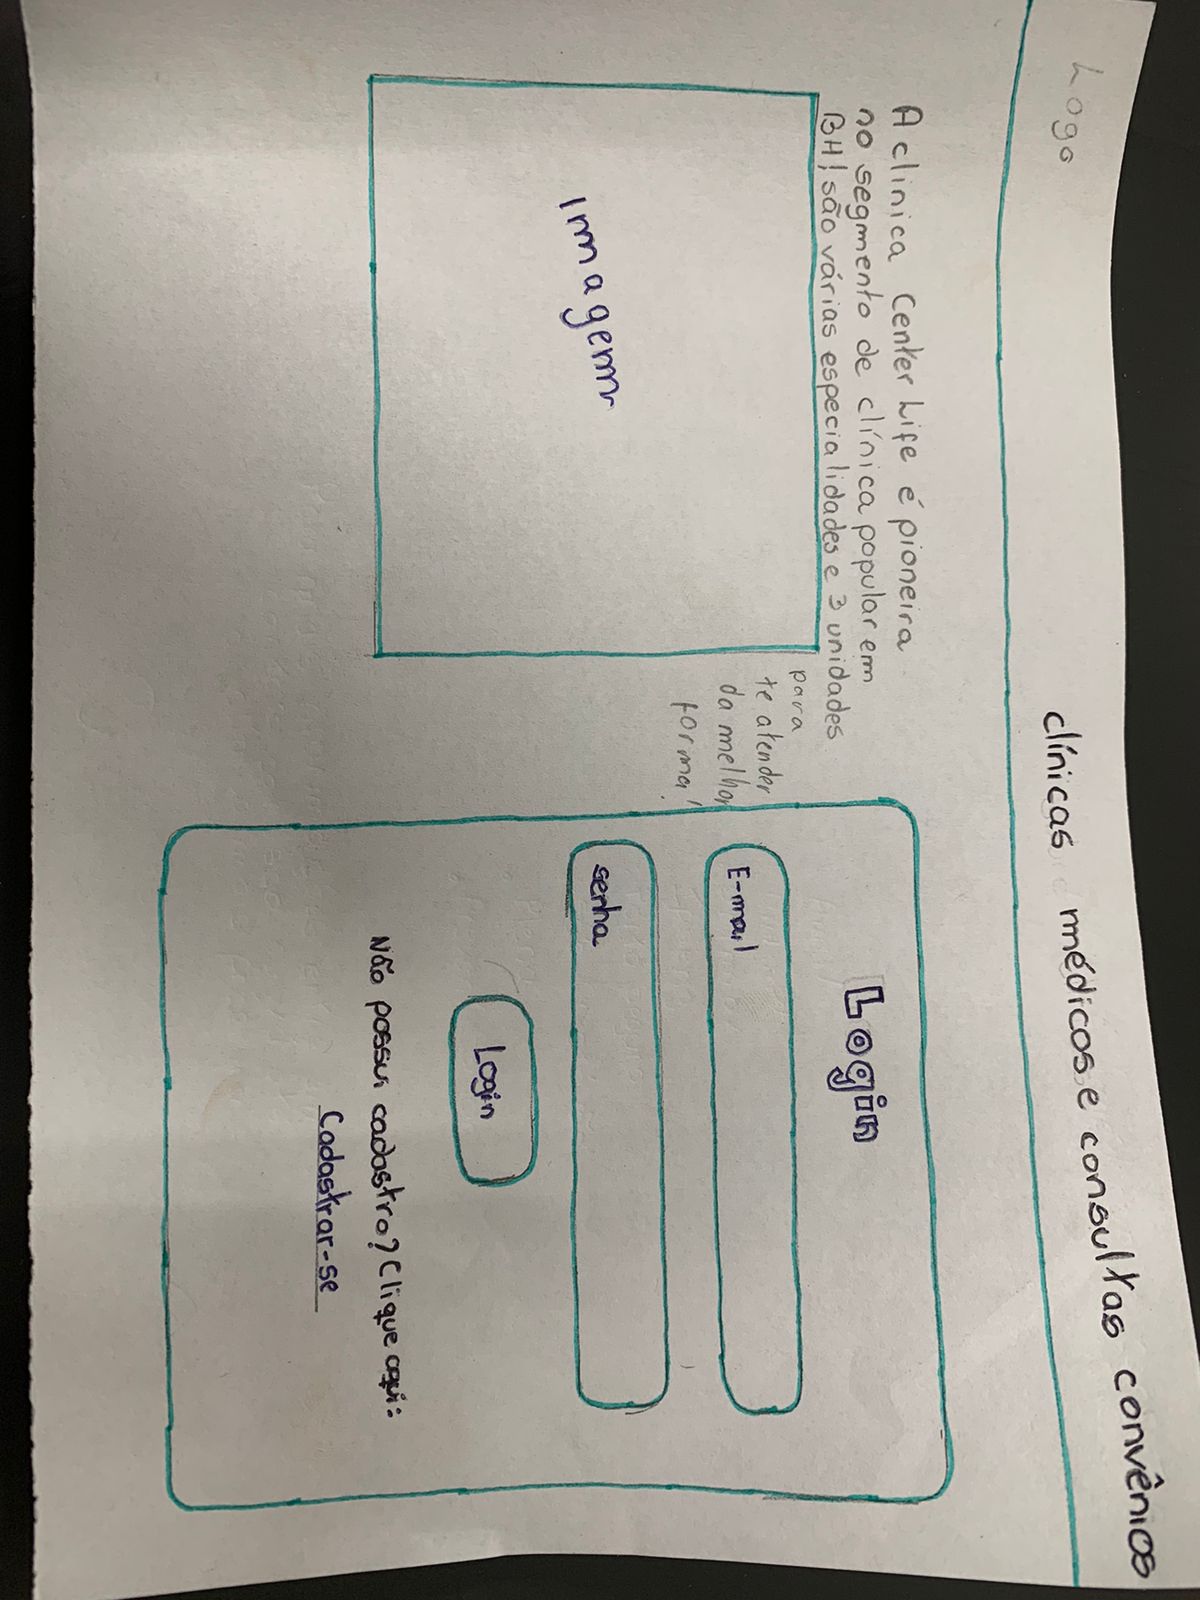 Logo
clínicas médicos e consultas convênios
A clinica Center Life é pioneira
no segmento de clínica popular em
BH! são várias especialidades e 3 unidades
para
te atender
da melhor
forma!
Imagem
Login
E-mail
senha
Login
Não possui cadastro? Clique aqui:
Cadastrar-se